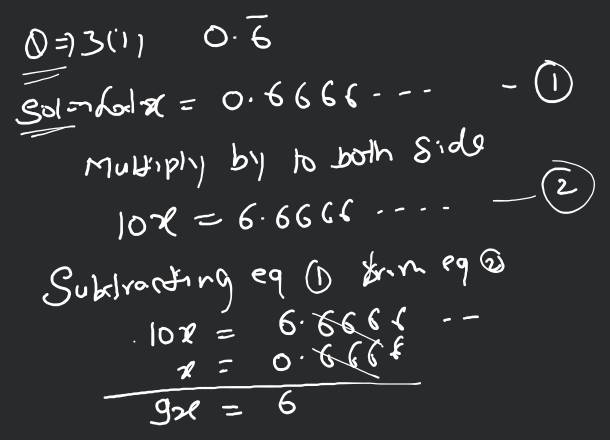 Q ⇒ 3(i) 0.6̅
Solⁿ Let x = 0.6666 - - - - ①
Multiply by 10 both side
10x = 6.6666 - - - - — ②
Subtracting eq ① from eq ②
10x = 6.6666 - -
x = 0.6666
9x = 6